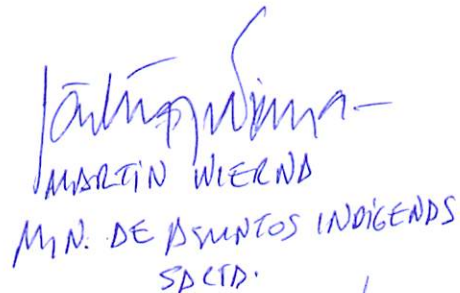 MARTIN WIERNA
MIN. DE ASUNTOS INDIGENAS
SALTA.